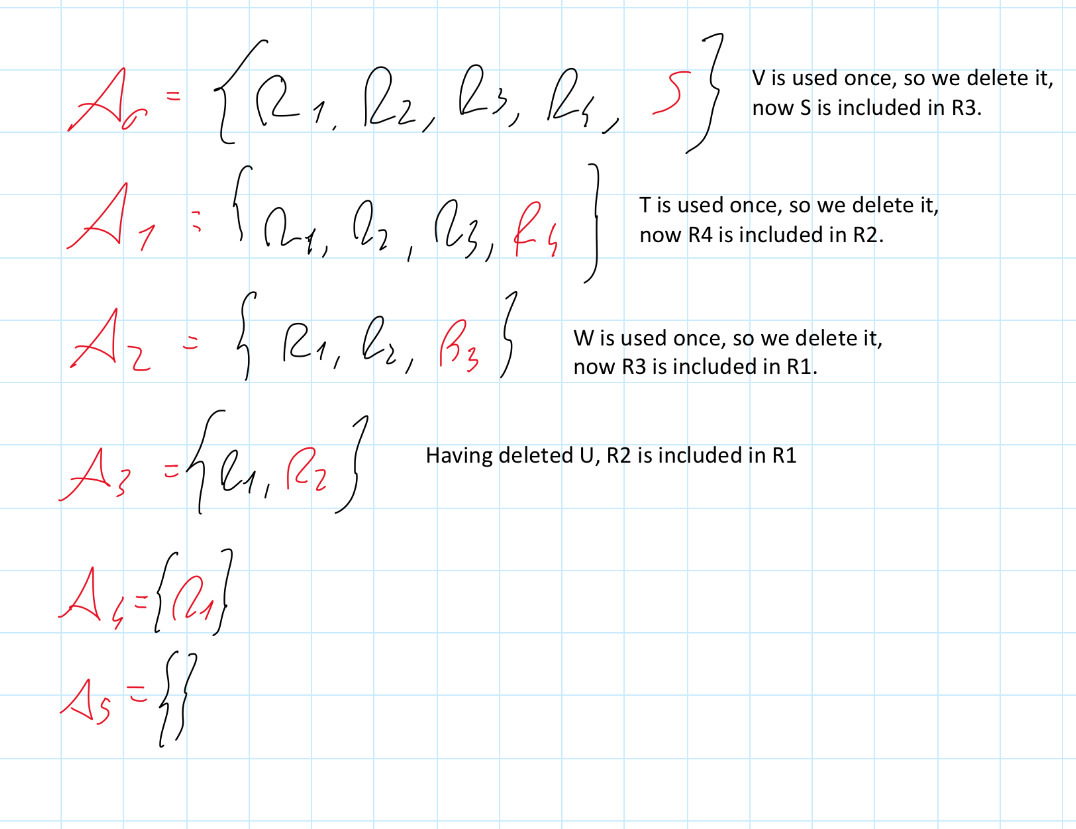 A₀ = {R1, R2, R3, R4, S} V is used once, so we delete it,
now S is included in R3.
A1 = {R1, R2, R3, R4} T is used once, so we delete it,
now R4 is included in R2.
A2 = {R1, R2, R3} W is used once, so we delete it,
now R3 is included in R1.
A3 = {R1, R2} Having deleted U, R2 is included in R1
A4 = {R1}
A5 = {}